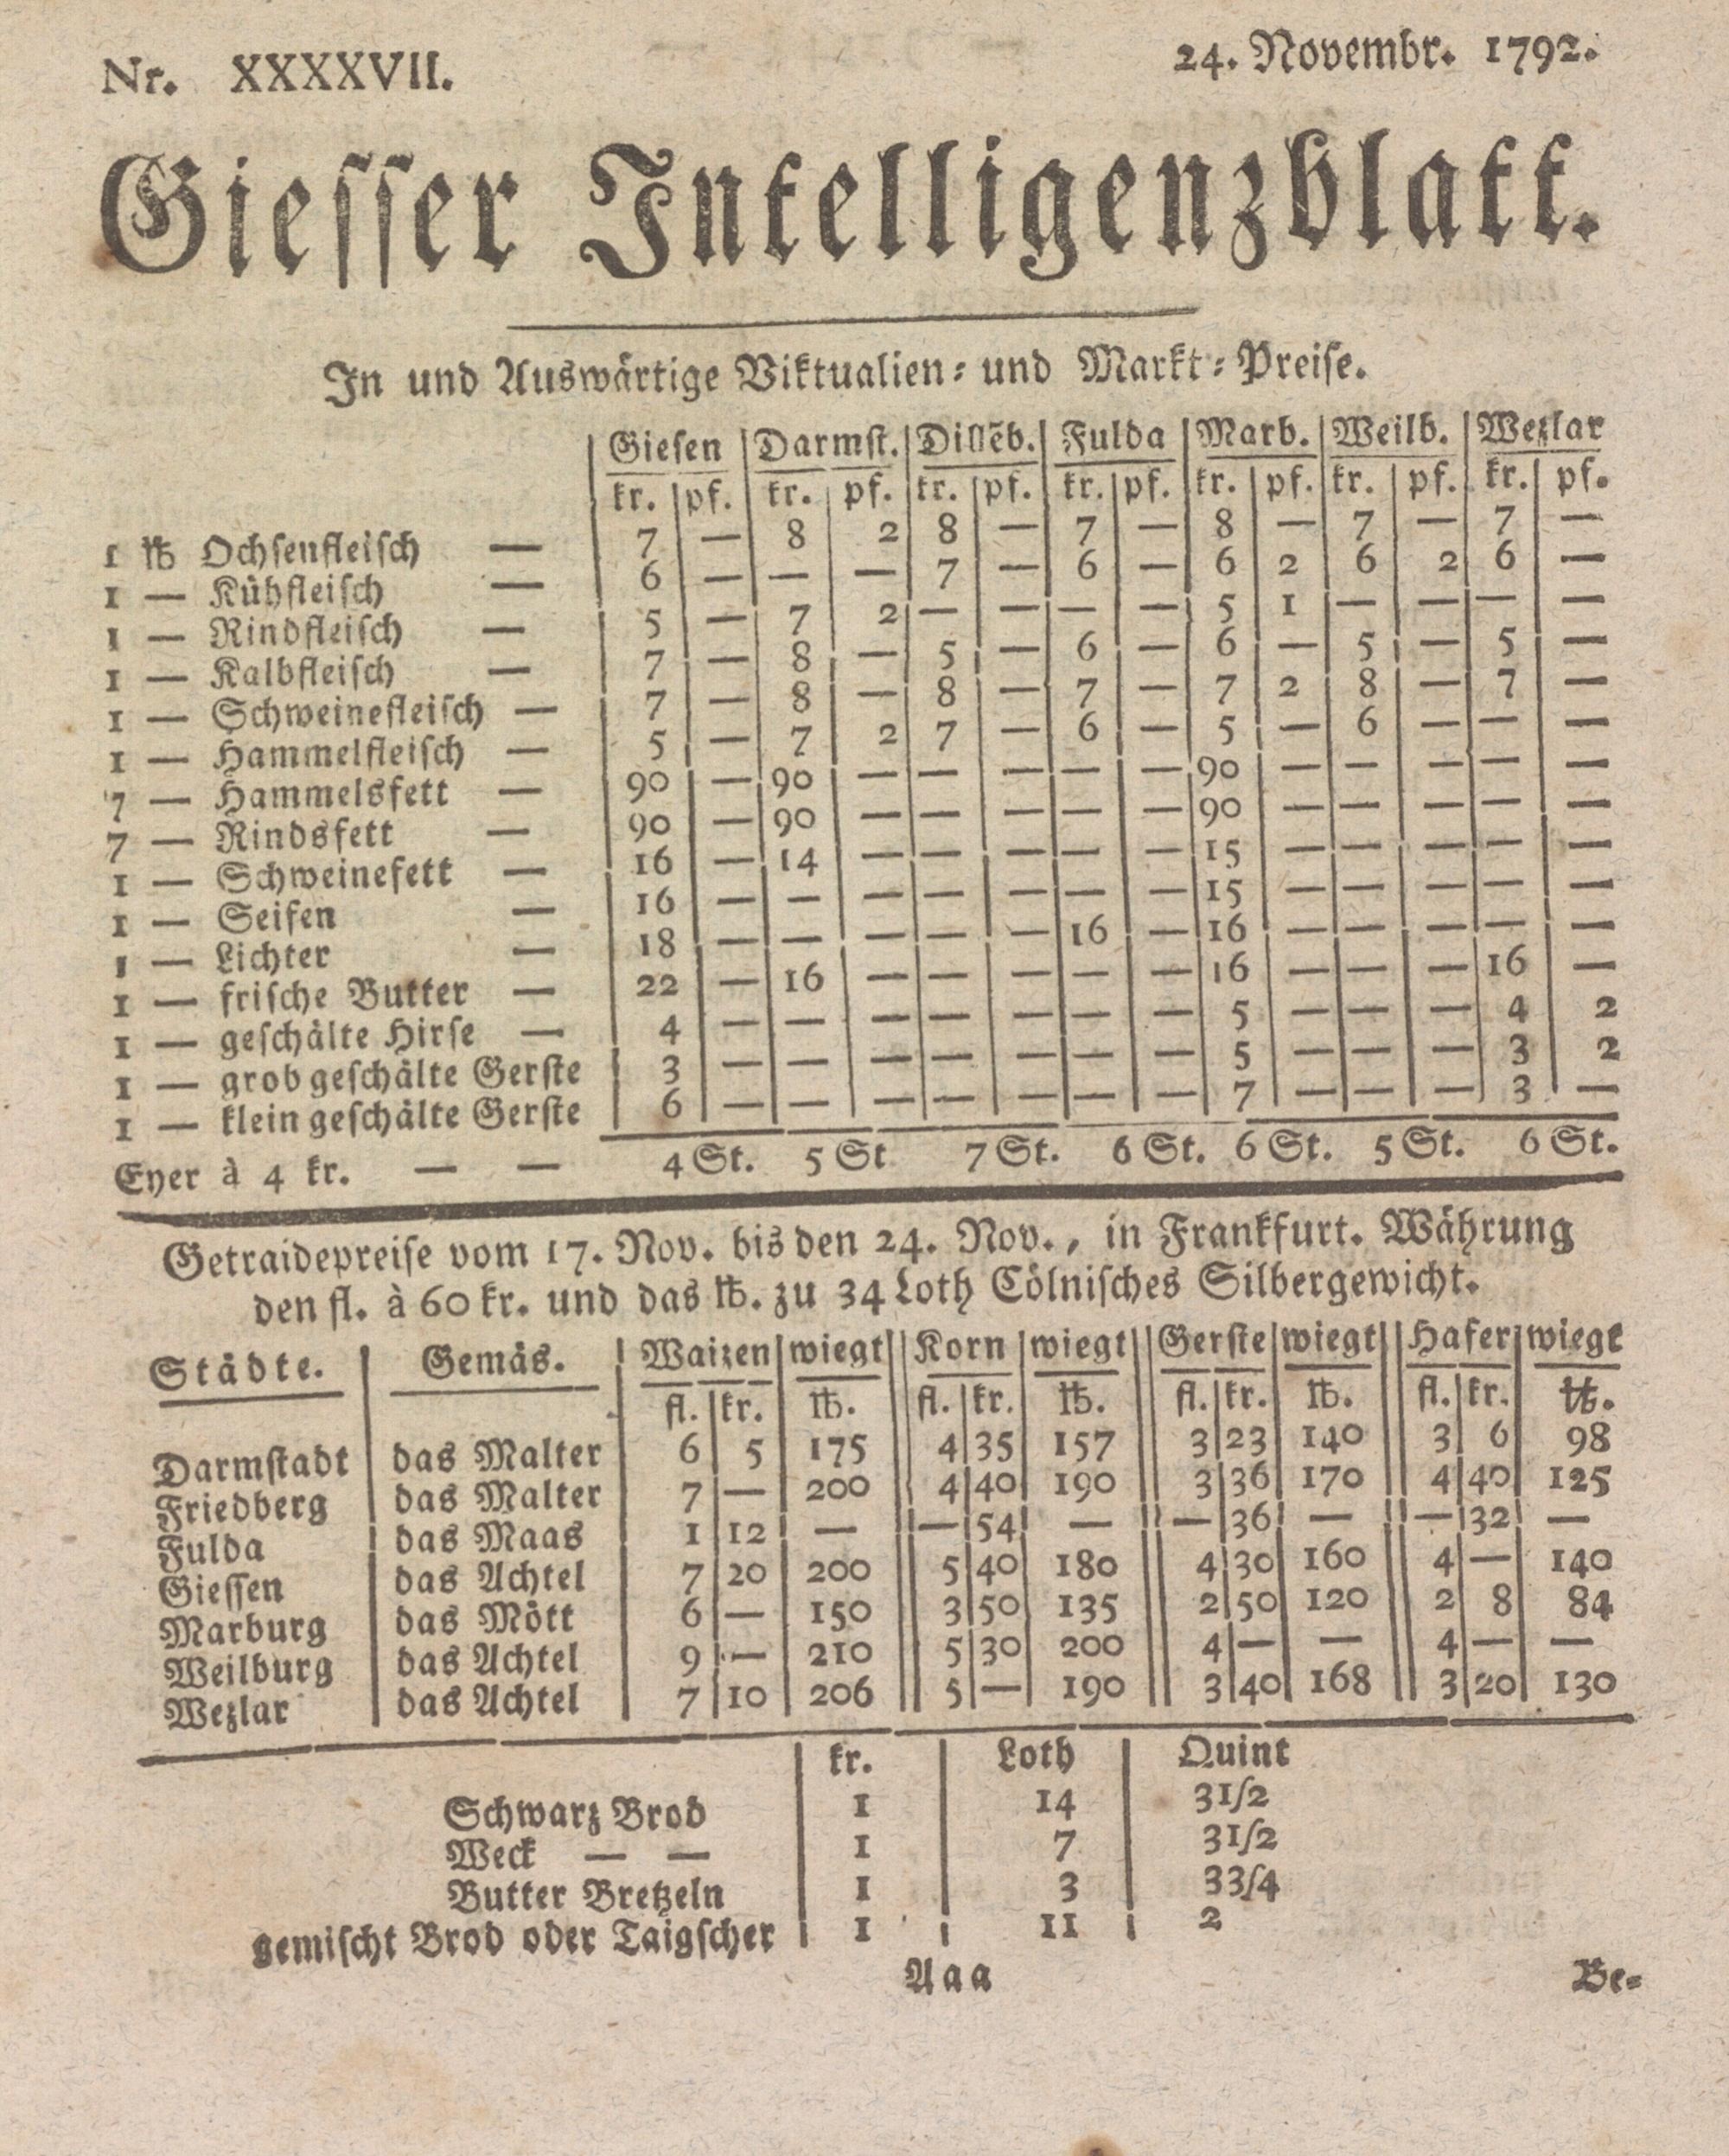 Nr. XXXXVII. 24. Novembr. 1792.
Giesser Intelligenzblatt.
In und Auswärtige Viktualien- und Markt-Preise.
Giesen | Darmst. | Dillẽb. | Fulda | Marb. | Weilb. | Wezlar
kr. | pf. | kr. | pf. | kr. | pf. | kr. | pf. | kr. | pf. | kr. | pf. | kr. | pf.
1 ℔ Ochsenfleisch — 7 | — | 8 | 2 | 8 | — | 7 | — | 8 | — | 7 | — | 7 | —
1 — Kühfleisch — 6 | — | — | — | 7 | — | 6 | — | 6 | 2 | 6 | 2 | 6 | —
1 — Rindfleisch — 5 | — | 7 | 2 | — | — | — | — | 5 | 1 | — | — | — | —
1 — Kalbfleisch — 7 | — | 8 | — | 5 | — | 6 | — | 6 | — | 5 | — | 5 | —
1 — Schweinefleisch — 7 | — | 8 | — | 8 | — | 7 | — | 7 | 2 | 8 | — | 7 | —
1 — Hammelfleisch — 5 | — | 7 | 2 | 7 | — | 6 | — | 5 | — | 6 | — | — | —
7 — Hammelsfett — 90 | — | 90 | — | — | — | — | — | 90 | — | — | — | — | —
7 — Rindsfett — 90 | — | 90 | — | — | — | — | — | 90 | — | — | — | — | —
1 — Schweinefett — 16 | — | 14 | — | — | — | — | — | 15 | — | — | — | — | —
1 — Seifen — 16 | — | — | — | — | — | — | — | 15 | — | — | — | — | —
1 — Lichter — 18 | — | — | — | — | — | 16 | — | 16 | — | — | — | — | —
1 — frische Butter — 22 | — | 16 | — | — | — | — | — | 16 | — | — | — | 16 | —
1 — geschälte Hirse — 4 | — | — | — | — | — | — | — | 5 | — | — | — | 4 | 2
1 — grob geschälte Gerste 3 | — | — | — | — | — | — | — | 5 | — | — | — | 3 | 2
1 — klein geschälte Gerste 6 | — | — | — | — | — | — | — | 7 | — | — | — | 3 | —
Eyer à 4 kr. — — 4 St. 5 St 7 St. 6 St. 6 St. 5 St. 6 St.
Getraidepreise vom 17. Nov. bis den 24. Nov., in Frankfurt. Währung
den fl. à 60 kr. und das ℔. zu 34 Loth Cölnisches Silbergewicht.
Städte. | Gemäs. | Waizen | wiegt || Korn | wiegt || Gerste | wiegt || Hafer | wiegt
fl. | kr. | ℔. || fl. | kr. | ℔. || fl. | kr. | ℔. || fl. | kr. | ℔.
Darmstadt | das Malter | 6 | 5 | 175 || 4 | 35 | 157 || 3 | 23 | 140 || 3 | 6 | 98
Friedberg | das Malter | 7 | — | 200 || 4 | 40 | 190 || 3 | 36 | 170 || 4 | 40 | 125
Fulda | das Maas | 1 | 12 | — || — | 54 | — || — | 36 | — || — | 32 | —
Giessen | das Achtel | 7 | 20 | 200 || 5 | 40 | 180 || 4 | 30 | 160 || 4 | — | 140
Marburg | das Mött | 6 | — | 150 || 3 | 50 | 135 || 2 | 50 | 120 || 2 | 8 | 84
Weilburg | das Achtel | 9 | — | 210 || 5 | 30 | 200 || 4 | — | — || 4 | — | —
Wezlar | das Achtel | 7 | 10 | 206 || 5 | — | 190 || 3 | 40 | 168 || 3 | 20 | 130
kr. | Loth | Quint
Schwarz Brod | 1 | 14 | 3 1/2
Weck — — | 1 | 7 | 3 1/2
Butter Bretzeln | 1 | 3 | 3 3/4
gemischt Brod oder Taigscher | 1 | 11 | 2
Aaa Be-